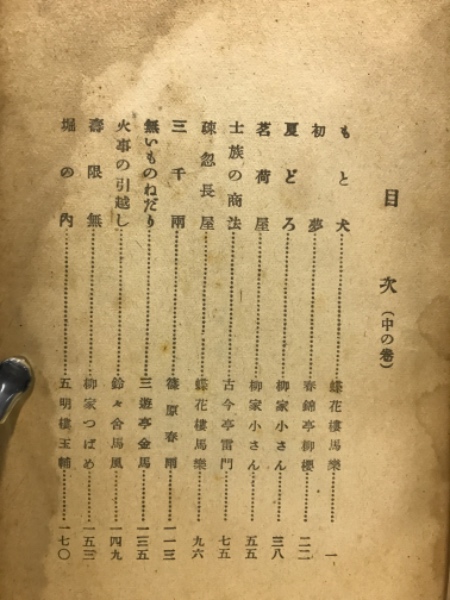 目次（中の卷）
もと犬……蝶花樓馬樂……一
初夢……春錦亭柳櫻……二二
夏どろ……柳家小さん……三八
茗荷屋……柳家小さん……五五
士族の商法……古今亭雷門……七五
疎忽長屋……蝶花樓馬樂……九六
三千兩……篠原春雨……一一三
無いものねだり……三遊亭金馬……一三五
火事の引越し……鈴々舍馬風……一四九
壽限無……柳家つばめ……一五三
堀の內……五明樓玉輔……一七〇